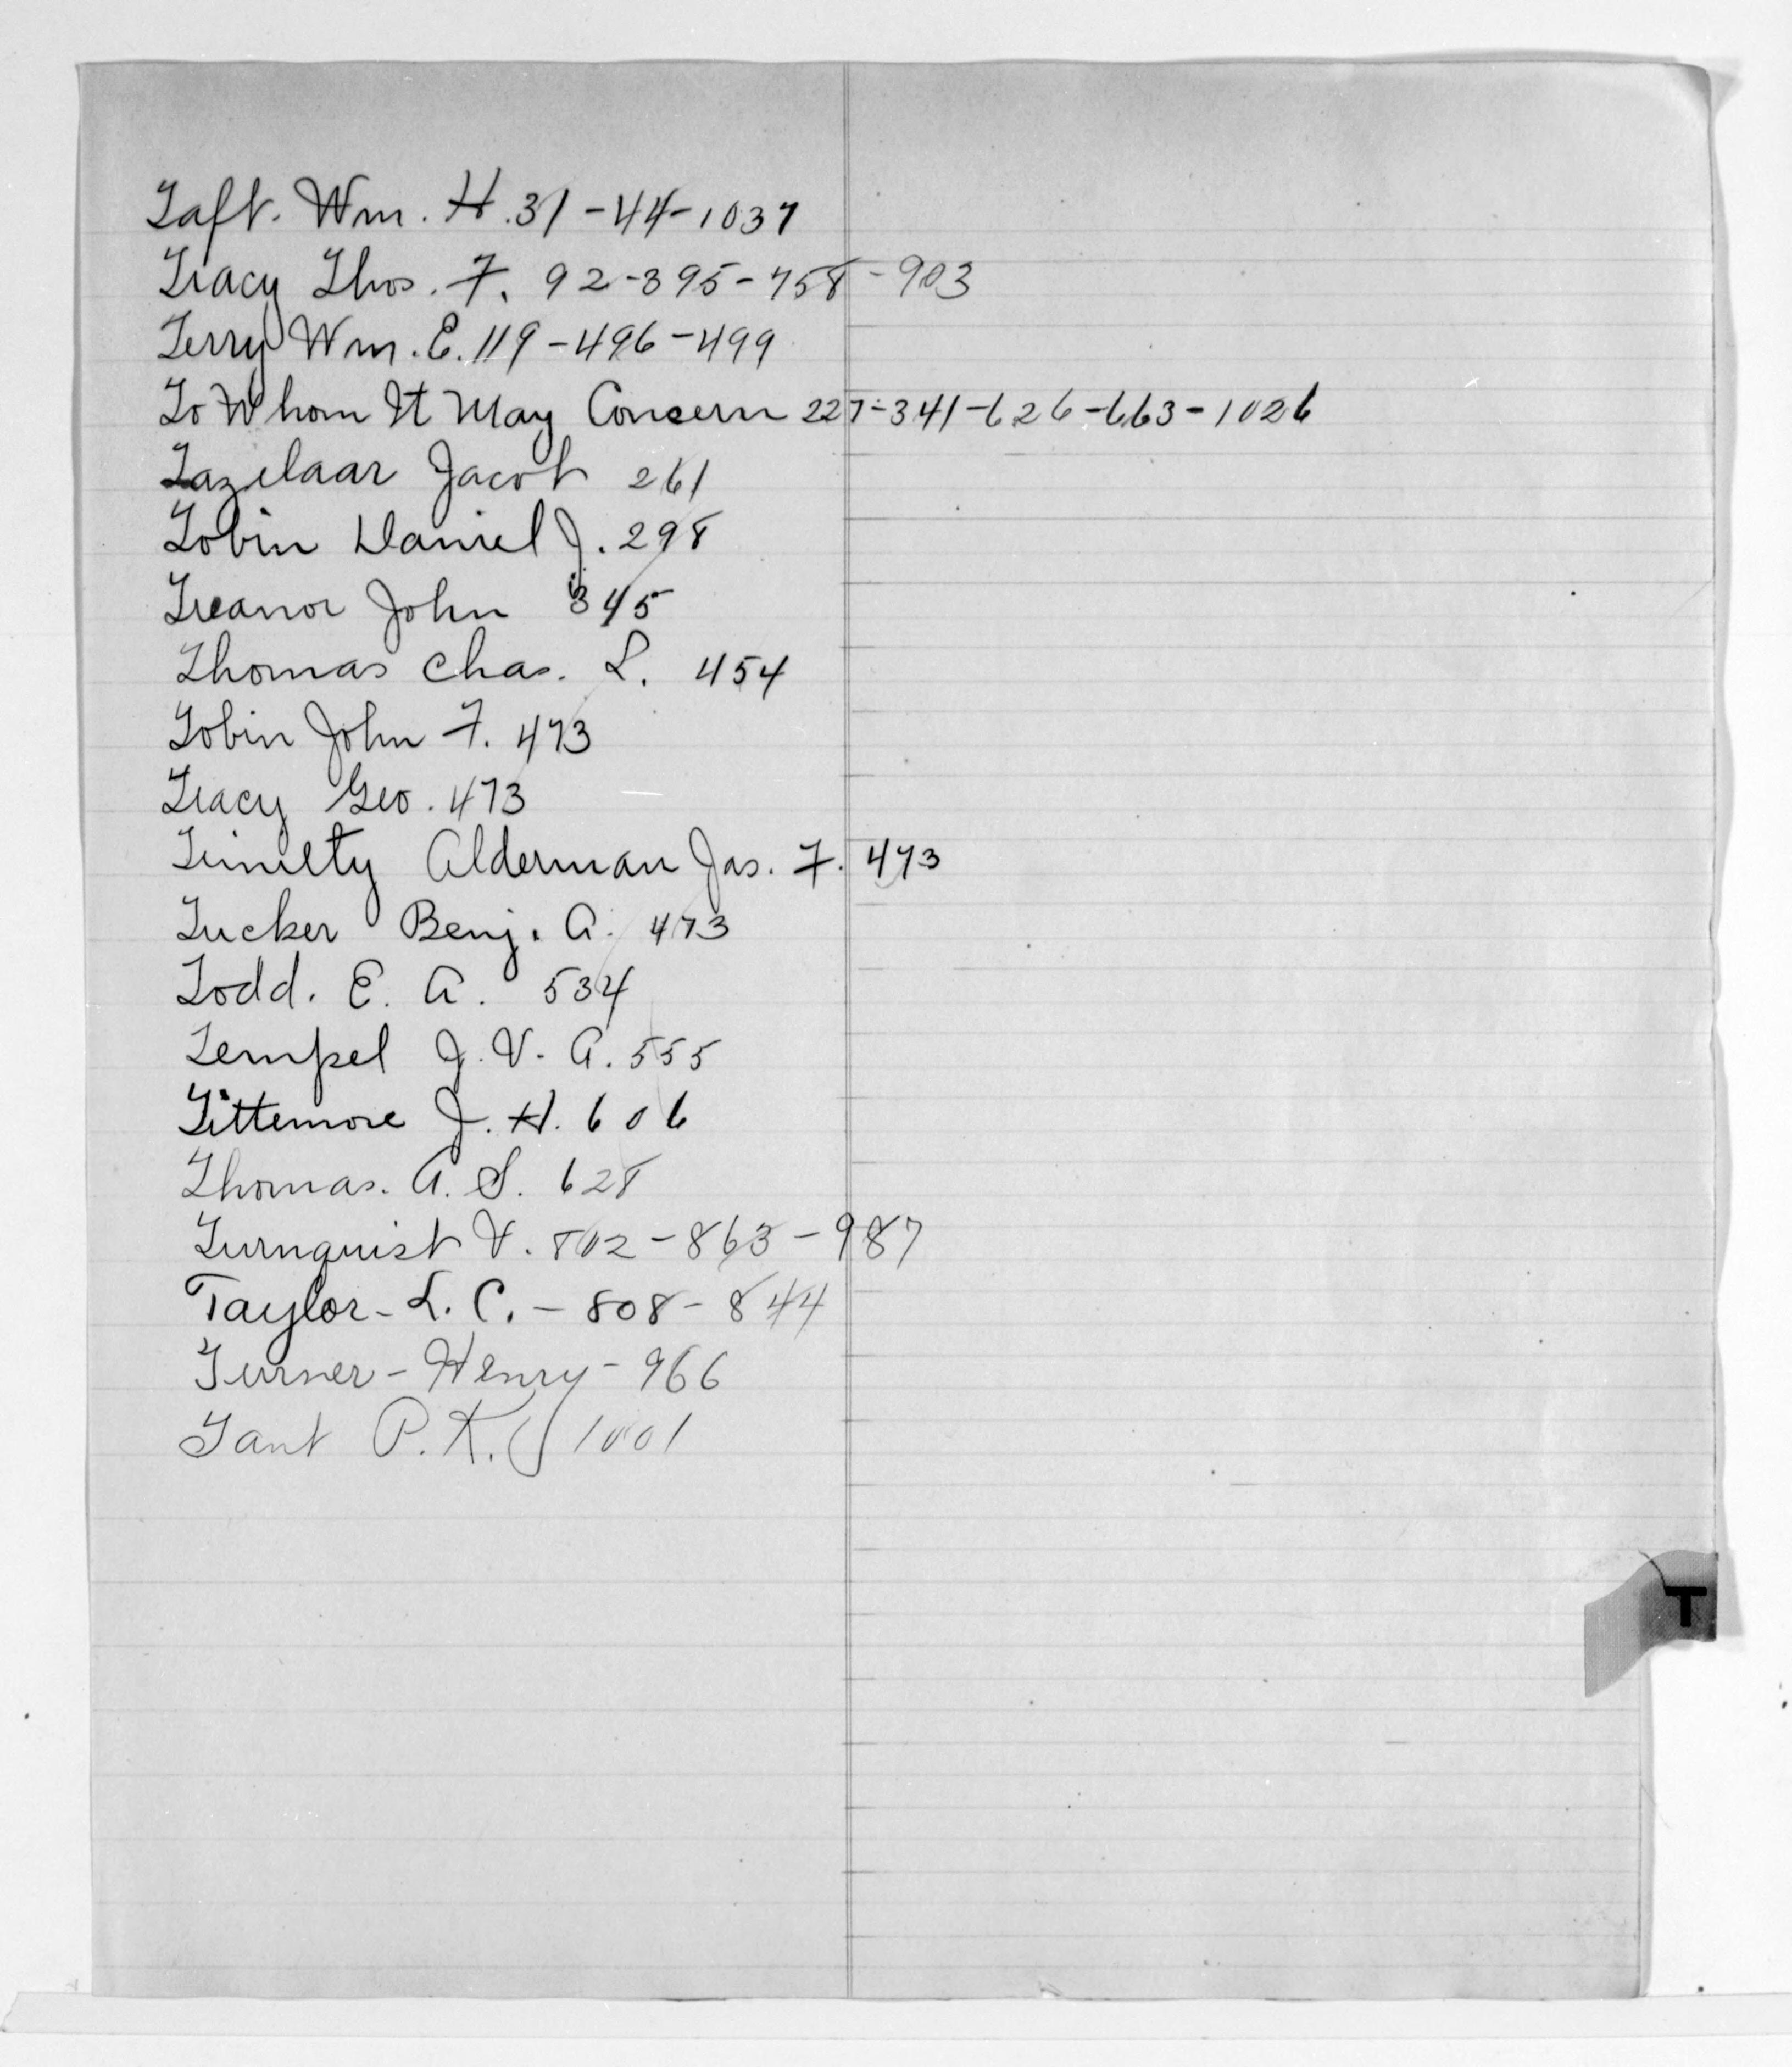 Taft. Wm. H. 31-44-1037
Tracy Thos. F. 92-395-758-903
Terry Wm. E. 119-496-499
To Whom It May Concern 227-341-626-663-1026
Tazelaar Jacob 261
Tobin Daniel J. 298
Treanor John 345
Thomas Chas. L. 454
Tobin John F. 473
Tracy Geo. 473
Timilty Alderman Jas. F. 473
Tucker Benj. A. 473
Todd. E. A. 534
Tempel J. V. A. 555
Tittemore J. H. 606
Thomas. A. S. 628
Turnquist V. 802-863-987
Taylor- L. C. - 808- 844
Turner - Henry - 966
Tant P. K. 1001
T